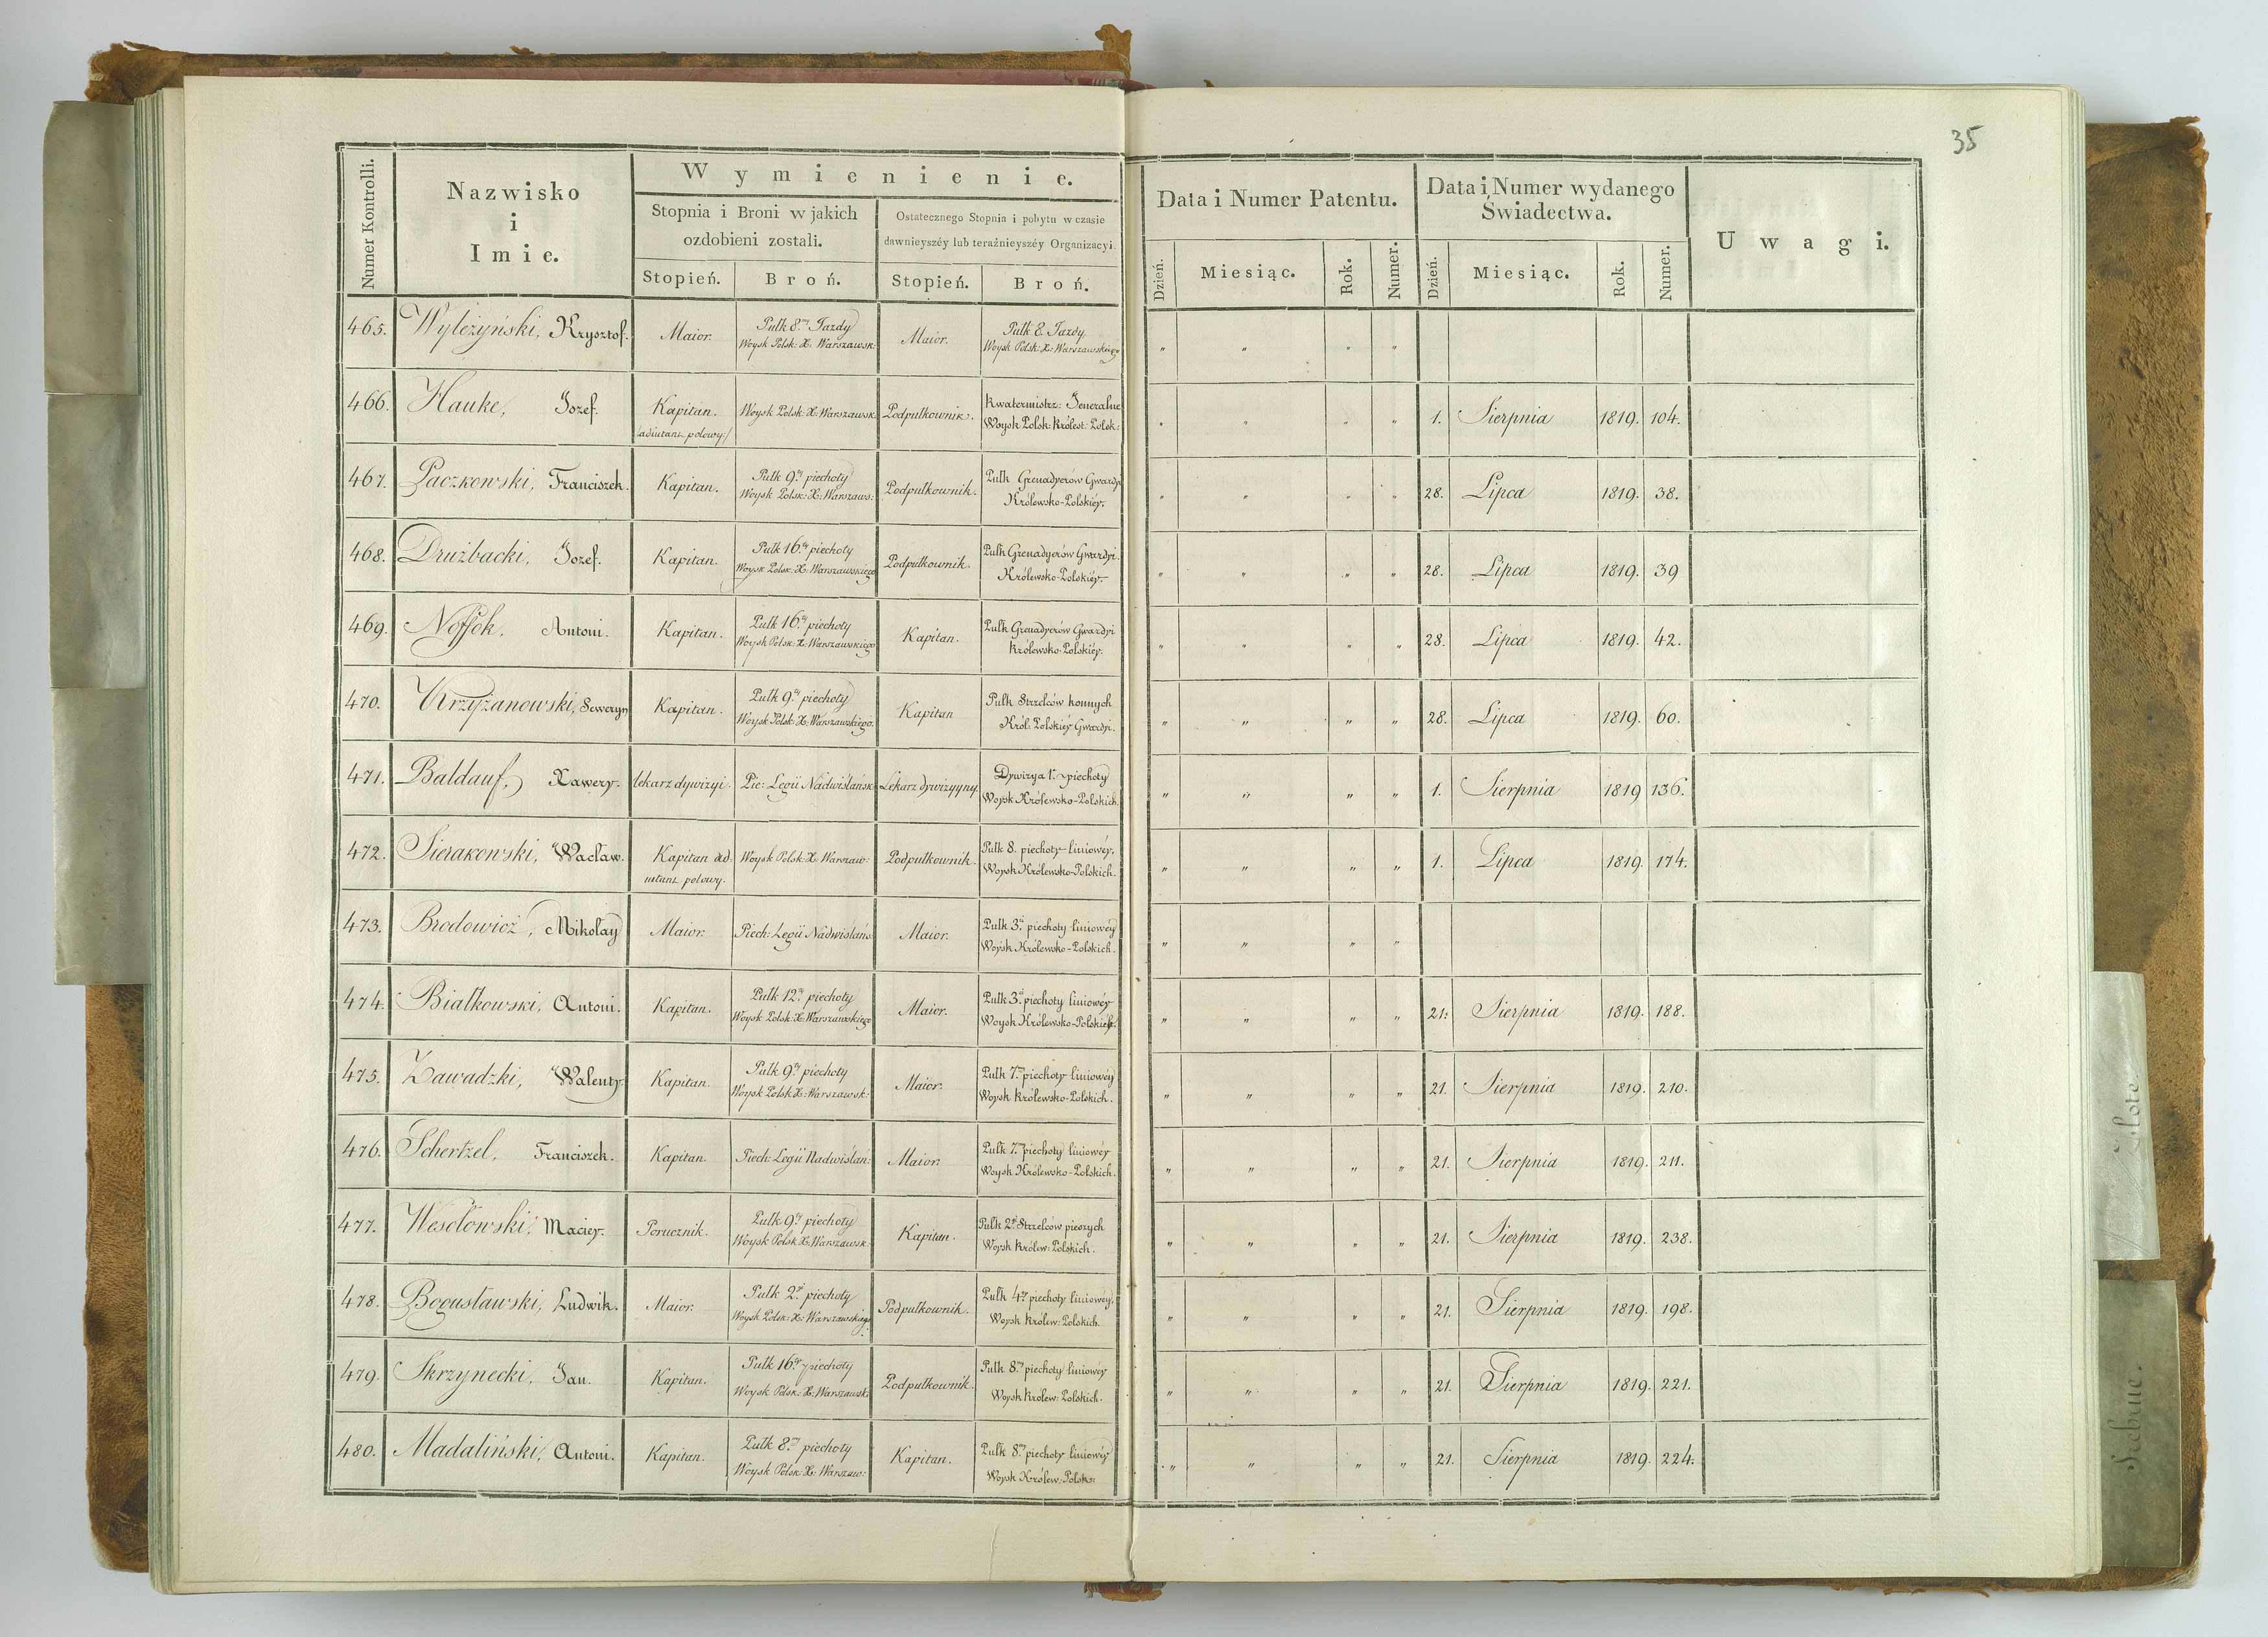 35
Numer Kontrolli.
Nazwisko
i
Imie.
Wymienienie.
Stopnia i Broni w jakich
ozdobieni zostali.
Ostatecznego Stopnia i pobytu w czasie
dawnieyszéy lub teraźnieyszéy Organizacyi.
Stopień. Broń. Stopień. Broń.
Data i Numer Patentu.
Dzień. Miesiąc. Rok. Numer.
Data i Numer wydanego
Świadectwa.
Dzień. Miesiąc. Rok. Numer.
Uwagi.
465. Wyleżyński, Krysztof. Maior. Pułk 8.my Jazdy Maior. Pułk 8. Jazdy
Woysk Polsk: X: Warszawsk: Woysk Polsk: X: Warszawskiego
" " " "
466. Hauke, Jozef. Kapitan. Woysk Polsk: X: Warszawsk: Podpułkownik. Kwatermistrz: Jeneralne
/adiutant polowy:/ Woysk Polsk: Królest: Polsk:
" " " " 1. Sierpnia 1819. 104.
467. Paczkowski, Franciszek. Kapitan. Pułk 9.ty piechoty Podpułkownik. Pułk Grenadyerów Gwardyi
Woysk Polsk: X: Warszaws: Królewsko-Polskiéy.
" " " " 28. Lipca 1819. 38.
468. Drużbacki, Jozef. Kapitan. Pułk 16.ty piechoty Podpułkownik. Pułk Grenadyerów Gwardyi.
Woysk Polsk: X: Warszawskiego Królewsko-Polskiéy.
" " " " 28. Lipca 1819. 39
469. Nossok, Antoni. Kapitan. Pułk 16.ty piechoty Kapitan. Pułk Grenadyerów Gwardyi
Woysk Polsk: X: Warszawskiego Królewsko-Polskiéy.
" " " " 28. Lipca 1819. 42.
470. Krzyżanowski, Seweryn Kapitan. Pułk 9.ty piechoty Kapitan Pułk Strzelców konnych
Woysk Polsk: X: Warszawskiego. Król: Polskiéy Gwardyi.
" " " " 28. Lipca 1819. 60.
471. Baldauf, Xawery. lekarz dywizyi. Pie: Legii Nadwislańsk: Lekarz dywizyyny. Dywizya 1. piechoty
Woysk Królewsko-Polskich.
" " " " 1. Sierpnia 1819 136.
472. Sierakowski, Wacław. Kapitan ad: Woysk Polsk: X: Warszaw: Podpułkownik. Pułk 8. piechoty liniowéy.
iutant polowy. Woysk Królewsko-Polskich.
" " " " 1. Lipca 1819. 174.
473. Brodowicz, Mikołay Maior. Piech: Legii Nadwislańs: Maior. Pułk 3.ci piechoty liniowéy
Woysk Królewsko-Polskich.
" " " "
474. Białkowski, Antoni. Kapitan. Pułk 12.ty piechoty Maior. Pułk 3.ci piechoty liniowéy
Woysk Polsk: X: Warszawskiego Woysk Królewsko-Polskich.
" " " " 21: Sierpnia 1819. 188.
475. Zawadzki, Walenty. Kapitan. Pułk 9.ty piechoty Maior. Pułk 7.my piechoty liniowéy
Woysk Polsk: X: Warszawsk: Woysk Królewsko-Polskich.
" " " " 21. Sierpnia 1819. 210.
476. Schertzel, Franciszek. Kapitan. Piech: Legii Nadwislan: Maior. Pułk 7.my piechoty liniowéy
Woysk Królewsko-Polskich.
" " " " 21. Sierpnia 1819. 211.
477. Wesołowski, Maciey. Porucznik. Pułk 9.ty piechoty Kapitan. Pułk 2.gi Strzelców pieszych
Woysk Polsk: X: Warszawsk: Woysk Królew: Polskich.
" " " " 21. Sierpnia 1819. 238.
478. Bogusławski, Ludwik. Maior. Pułk 2.gi piechoty Podpułkownik. Pułk 4.ty piechoty liniowéy.
Woysk Polsk: X: Warszawskiego Woysk Królew: Polskich.
" " " " 21. Sierpnia 1819. 198.
479. Skrzynecki, Jan. Kapitan. Pułk 16.ty piechoty Podpułkownik. Pułk 8.my piechoty liniowéy
Woysk Polsk: X: Warszawsk: Woysk Królew: Polskich.
" " " " 21. Sierpnia 1819. 221.
480. Madaliński, Antoni. Kapitan. Pułk 8.my piechoty Kapitan. Pułk 8.my piechoty liniowéy
Woysk Polsk: X: Warszaw: Woysk Królew: Polsk:
" " " " 21. Sierpnia 1819. 224.
Złote.
Srebrne.